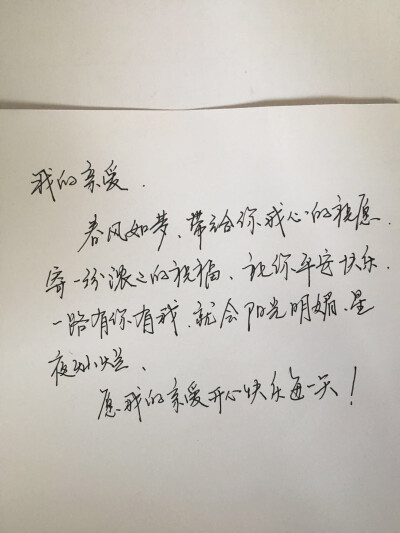 我的亲爱.
春风如梦、带给你我心的祝愿.
寄一份浓之的祝福、让你平安快乐.
一路有你有我.就会阳光明媚.星
夜灿烂、
愿我的亲爱开心快乐每一天！